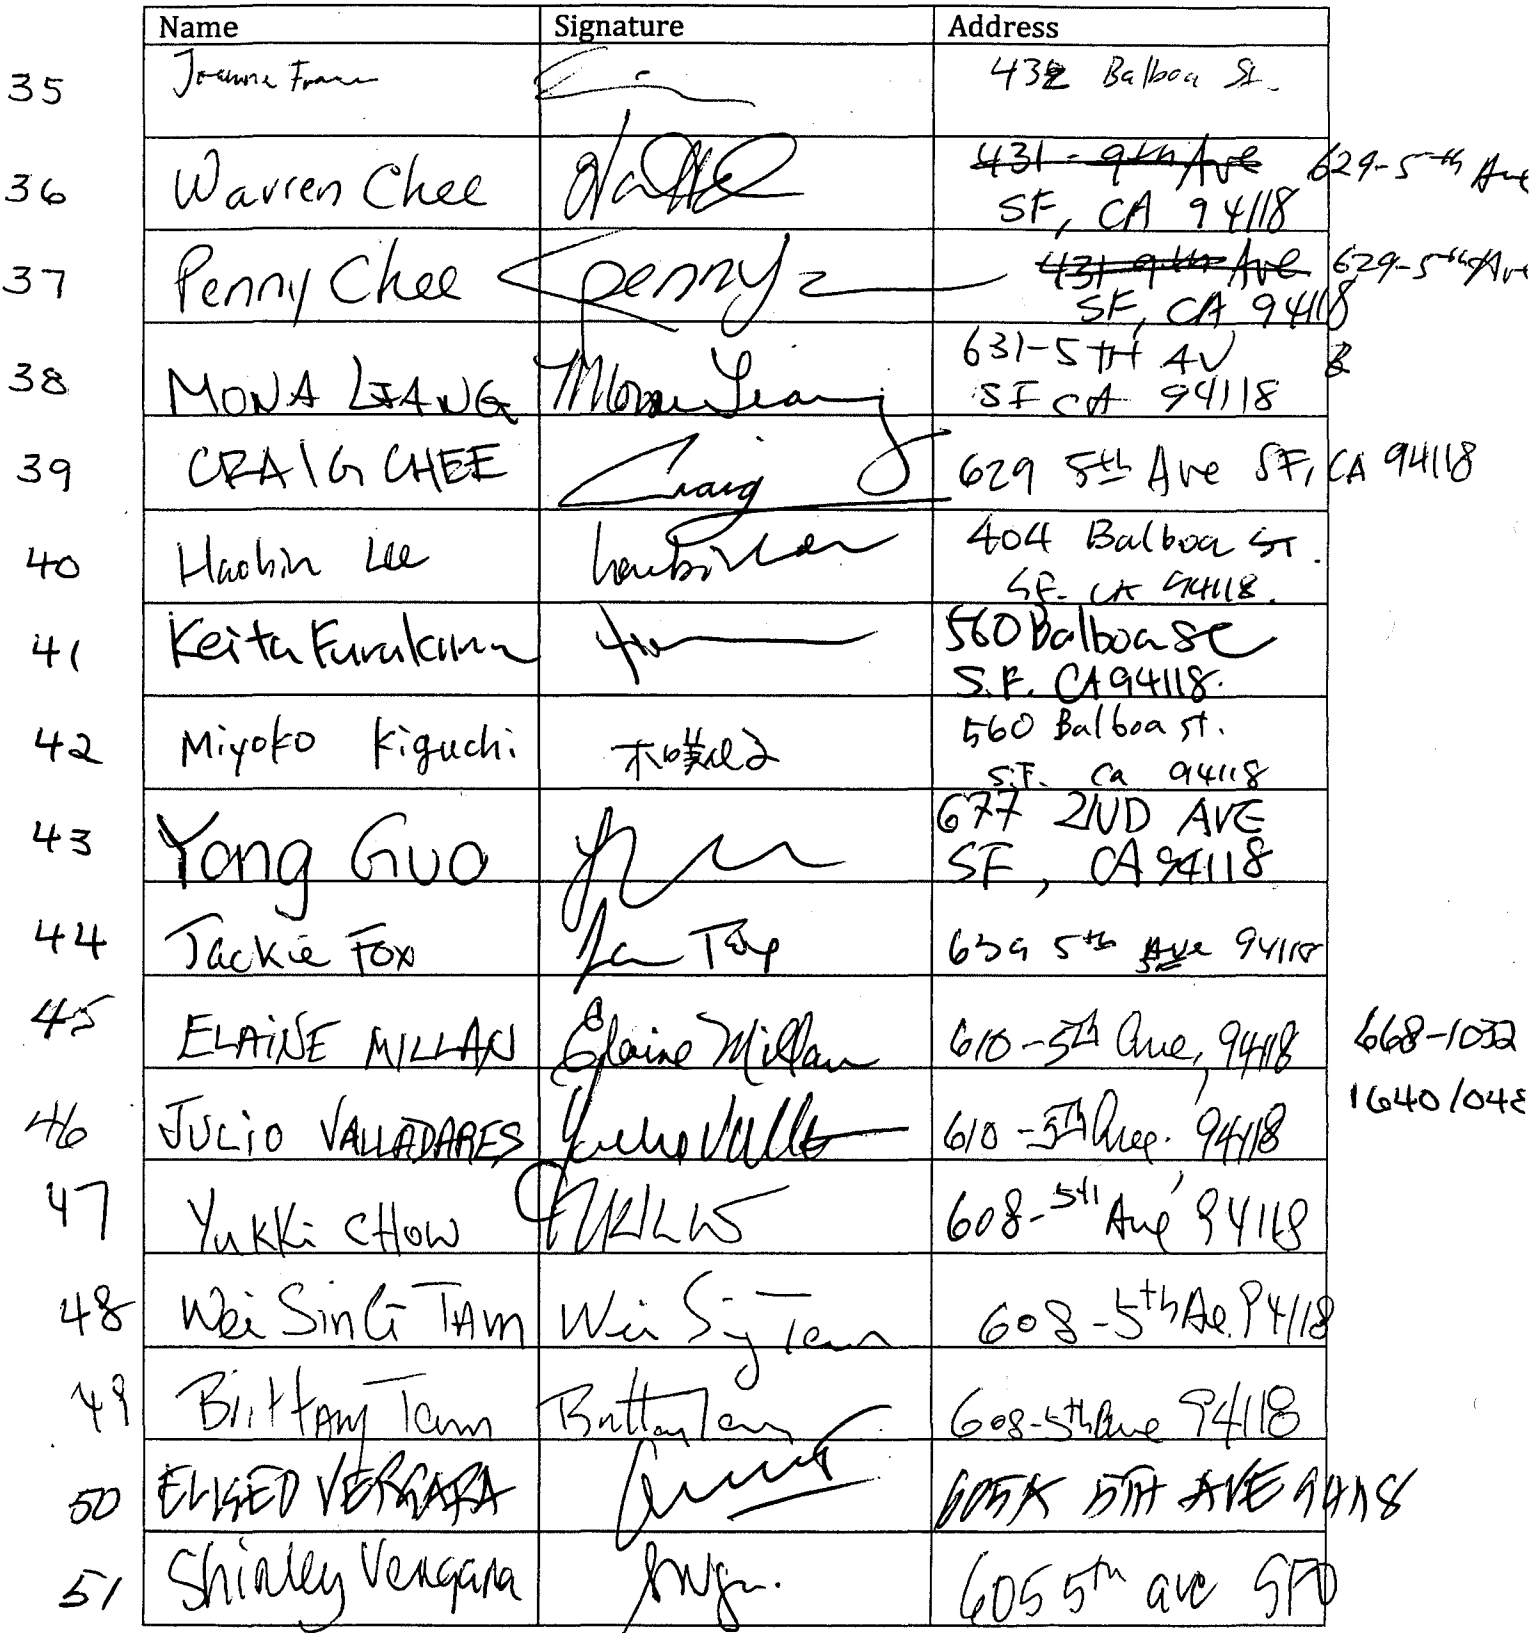 Name Signature Address
35 Joanne 432 Balboa St.
36 Warren Chee 431 - 9th Ave 629-5th Ave
SF, CA 94118
37 Penny Chee Penny 431 9th Ave 629-5th Ave
SF, CA 94118
38 MONA LIANG Mona Liang 631-5TH AV
SF CA 94118
39 CRAIG CHEE Craig 629 5th Ave SF, CA 94118
40 Lee 404 Balboa ST.
SF. CA 94118.
41 Keita Furukawa 560 Balboa St
S.F. CA 94118.
42 Miyoko Kiguchi 木口美代子 560 Balboa st.
S.F. Ca 94118
43 Yong Guo 677 2ND AVE
SF, CA 94118
44 Jackie Fox 639 5th Ave 94118
45 ELAINE MILLAN Elaine Millan 610-5th Ave, 94118 668-1032
46 JULIO VALLADARES 610-5th Ave, 94118
47 YuKKi CHOW 608-5th Ave 94118
48 Wei SinG TAm Wei Sing Tam 608-5th Ave 94118
49 BrittAny Tam Brittany Tam 608-5th Ave 94118
50 ELISEO VERGARA 5TH AVE 94118
51 Shirley Vergara 605 5th ave SFO